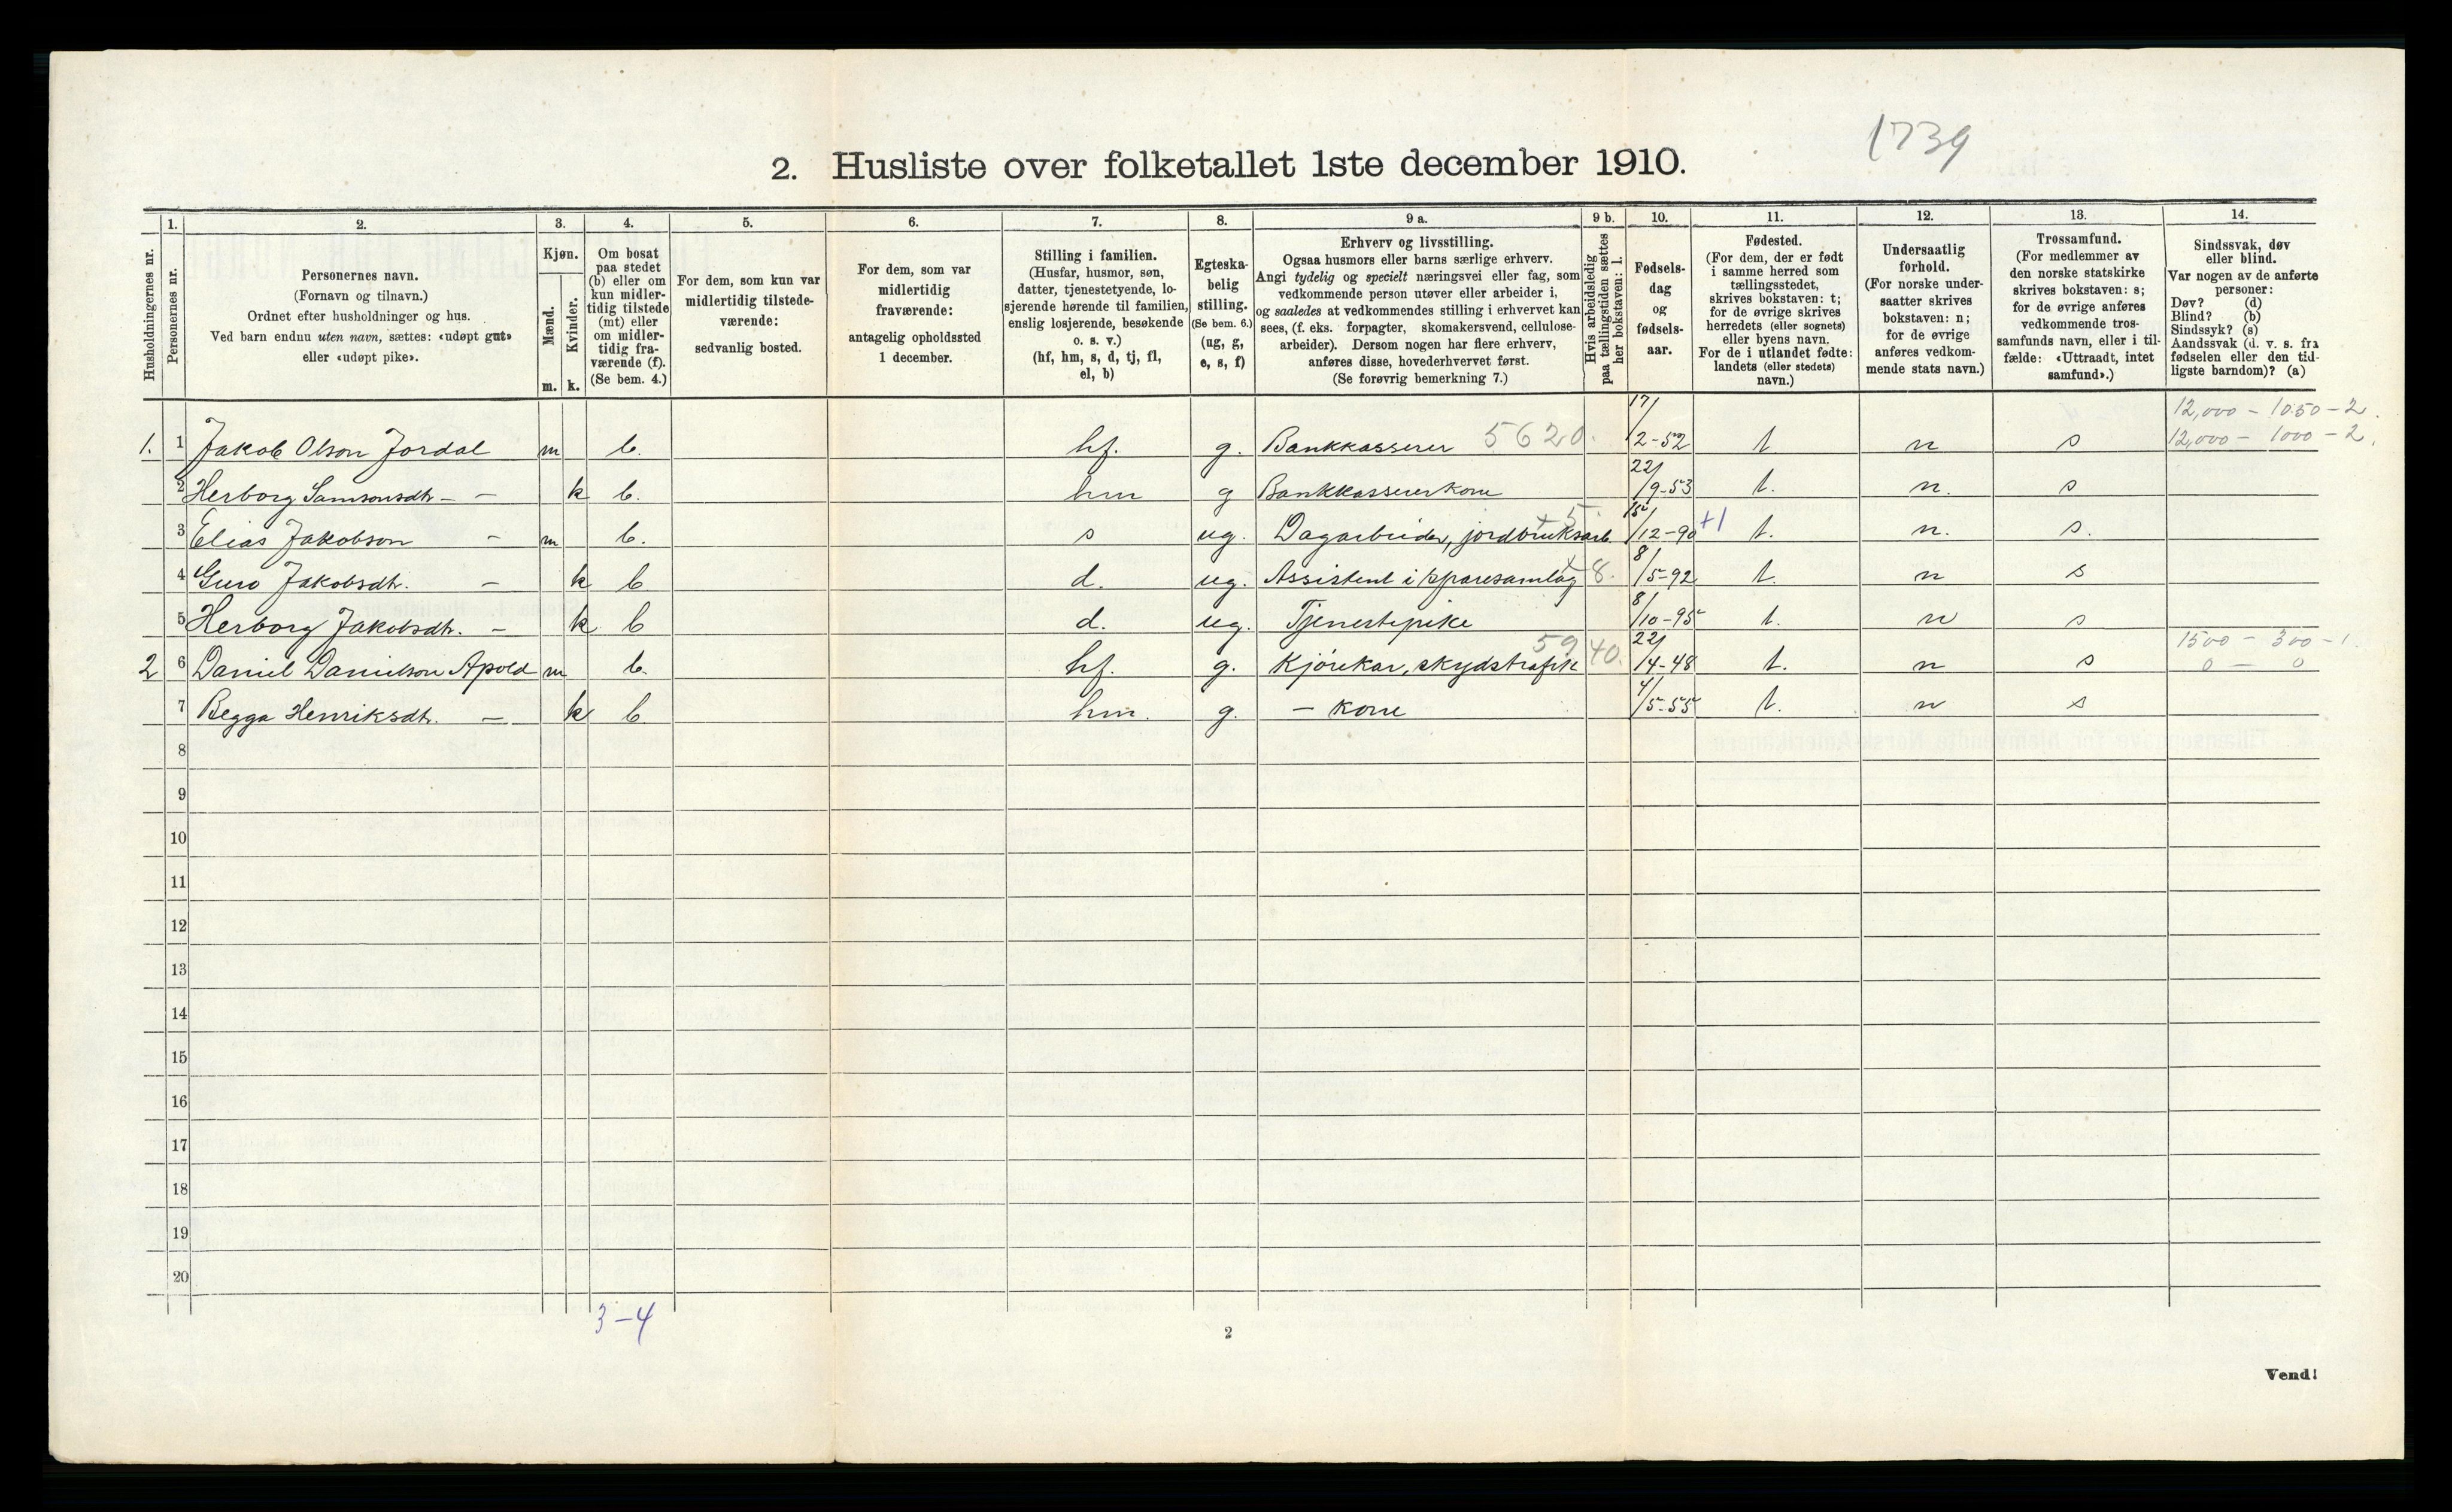 1739
2. Husliste over folketallet 1ste december 1910.
Husholdningernes nr.
1.
Personernes nr.
2.
Personernes navn.
(Fornavn og tilnavn.)
Ordnet efter husholdninger og hus.
Ved barn endnu uten navn, sættes: «udøpt gut»
eller «udøpt pike».
3.
Kjøn.
Mænd.
m.
Kvinder.
k.
4.
Om bosat
paa stedet
(b) eller om
kun midler-
tidig tilstede
(mt) eller
om midler-
tidig fra-
værende (f).
(Se bem. 4.)
5.
For dem, som kun var
midlertidig tilstede-
værende:
sedvanlig bosted.
6.
For dem, som var
midlertidig
fraværende:
antagelig opholdssted
1 december.
7.
Stilling i familien.
(Husfar, husmor, søn,
datter, tjenestetyende, lo-
sjerende hørende til familien,
enslig losjerende, besøkende
o. s. v.)
(hf, hm, s, d, tj, fl,
el, b)
8.
Egteska-
belig
stilling.
(Se bem. 6.)
(ug, g,
e, s, f)
9 a.
Erhverv og livsstilling.
Ogsaa husmors eller barns særlige erhverv.
Angi tydelig og specielt næringsvei eller fag, som
vedkommende person utøver eller arbeider i,
og saaledes at vedkommendes stilling i erhvervet kan
sees, (f. eks. forpagter, skomakersvend, cellulose-
arbeider). Dersom nogen har flere erhverv,
anføres disse, hovederhvervet først.
(Se forøvrig bemerkning 7.)
9 b.
Hvis arbeidsledig
paa tællingstiden sættes
her bokstaven: l.
10.
Fødsels-
dag
og
fødsels-
aar.
11.
Fødested.
(For dem, der er født
i samme herred som
tællingsstedet,
skrives bokstaven: t;
for de øvrige skrives
herredets (eller sognets)
eller byens navn.
For de i utlandet fødte:
landets (eller stedets)
navn.)
12.
Undersaatlig
forhold.
(For norske under-
saatter skrives
bokstaven: n;
for de øvrige
anføres vedkom-
mende stats navn.)
13.
Trossamfund.
(For medlemmer av
den norske statskirke
skrives bokstaven: s;
for de øvrige anføres
vedkommende tros-
samfunds navn, eller i til-
fælde: «Uttraadt, intet
samfund».)
14.
Sindssvak, døv
eller blind.
Var nogen av de anførte
personer:
Døv? (d)
Blind? (b)
Sindssyk? (s)
Aandssvak (d. v. s. fra
fødselen eller den tid-
ligste barndom)? (a)
12,000 – 1050 – 2.
1. 1 Jakob Olson Jordal m b. hf. g. Bankkasserer 5620. 17/2-52 t n s 12,000 – 1000 – 2.
2 Herborg Samsonsdtr – – k b. hm g Bankkassererkone 22/9-53 t. n. s
3 Elias Jakobson – m b. s ug. Dagarbeider, jordbruksarb. +5. 15/12-90 +1 t. n. s.
4 Guro Jakobsdtr. – k b d. ug. Assistent i sparesamlag x 8. 8/5-92 t. n s
5 Herborg Jakobsdtr. – k b d. ug. Tjenestepike 8/10-95 t. n s
1500 – 300 – 1.
2 6 Daniel Danielson Apold m b. hf. g. Kjørekar, skydstrafik 5940. 22/4-48 t. n s 0 – 0
7 Begga Henriksdtr. – k b. hm. g. – kone 4/5-55 t. n s
8
9
10
11
12
13
14
15
16
17
18
19
20
3–4
2
Vend!